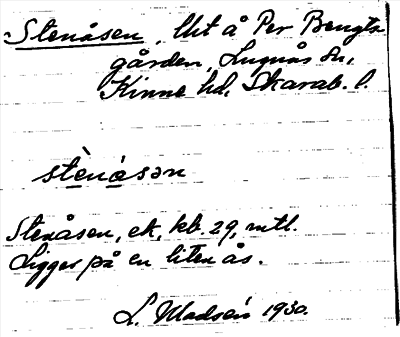 Stenåsen, lht å Per Bengts-
gården, Lugnås sn,
Kinne hd, Skarab. l.
stènåsən
Stenåsen, ek, kb. 29, mtl.
Ligger på en liten ås.
L. Madsén 1930.